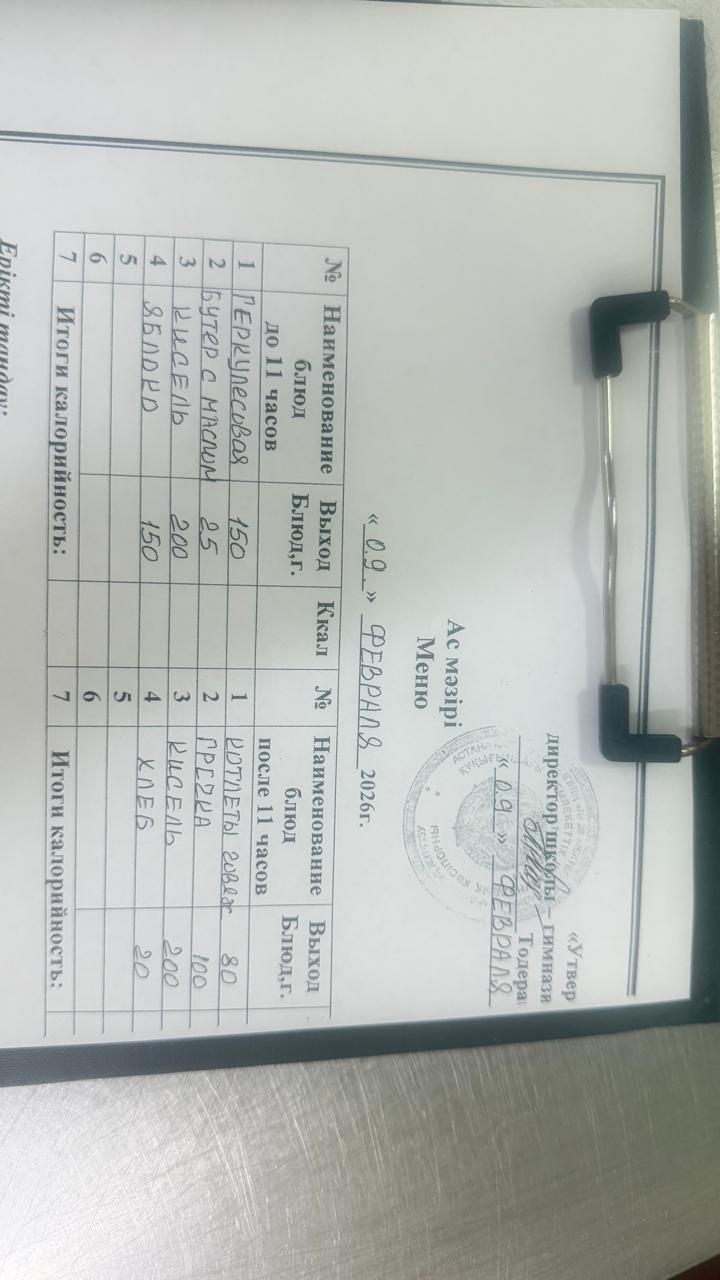 «Утвер
директор школы – гимнази
Тодера
«09» ФЕВРАЛЯ
Ас мәзірі
Меню
«09» ФЕВРАЛЯ 2026г.
№ Наименование блюд до 11 часов Выход Блюд,г. Ккал № Наименование блюд после 11 часов Выход Блюд,г.
1 ГЕРКУЛЕСОВАЯ 150 1 КОТЛЕТЫ говяж 80
2 БУТЕР С МАСЛОМ 25 2 ГРЕЧКА 100
3 КИСЕЛЬ 200 3 КИСЕЛЬ 200
4 ЯБЛОКО 150 4 ХЛЕБ 20
5 5
6 6
7 Итоги калорийность: 7 Итоги калорийность:
Ерікті таңдау: